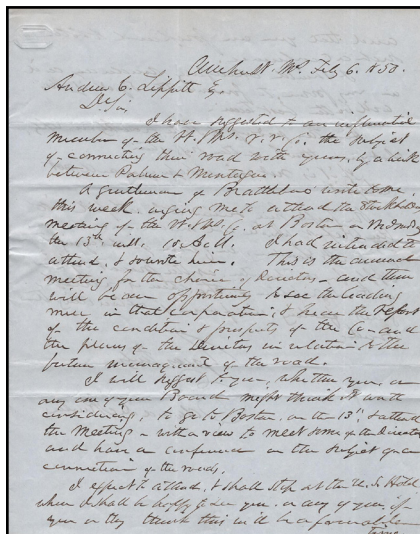 Amherst, Ms. Feby 6. 1850.
Andrew C. Lippitt Esq.
Dr Sir,
I have suggested to an influential
member of the V. & Ms. R. R. Co. the subject
of connecting their road with yours, by a link
between Palmer & Montague.
A gentleman of Brattleboro wrote me
this week, urging me to attend the Stockholders
meeting of the V. & Ms. Co. at Boston on
the 13th inst. I had intended to
attend, & so wrote him. This is the annual
meeting for the choice of Directors and there
will be an opportunity to see the leading
men in that corporation, & hear the report
of the condition & property of the Co. and
the plans of the Directors in relation to the
future management of the road.
I will suggest to you, whether you, or
any one of your Board might think it worth
considering, to go to Boston, on the 13th, & attend
the meeting with a view to meet some of the Directors
and have a conference on the subject of a
connection of the roads.
I expect to attend, & shall stop at the U. S. Hotel
where I shall be happy to see you, or any of you, if
you or they think this will be a favorable
time